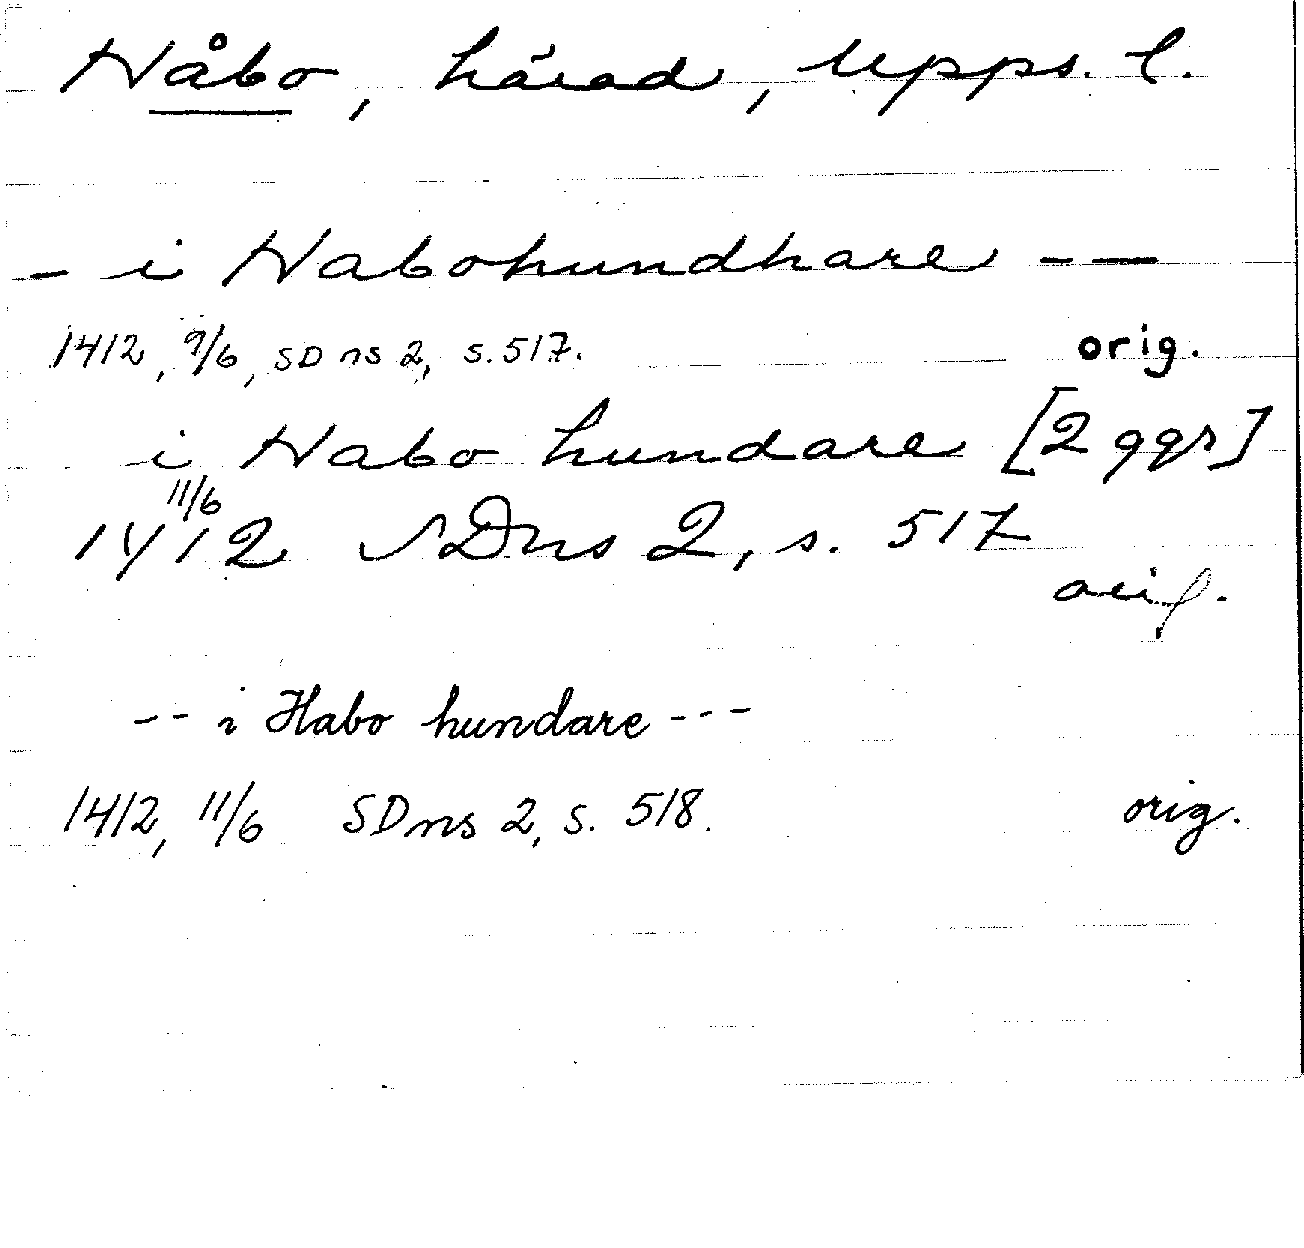 Håbo, härad, Upps. l.
- i Habohundhare - -
1412, 9/6, SD ns 2, s. 517. orig.
i Habo hundare [2 ggr]
11/6
1412 SDns 2, s. 517
orig.
-- i Habo hundare ---
1412, 11/6 SDns 2, s. 518. orig.